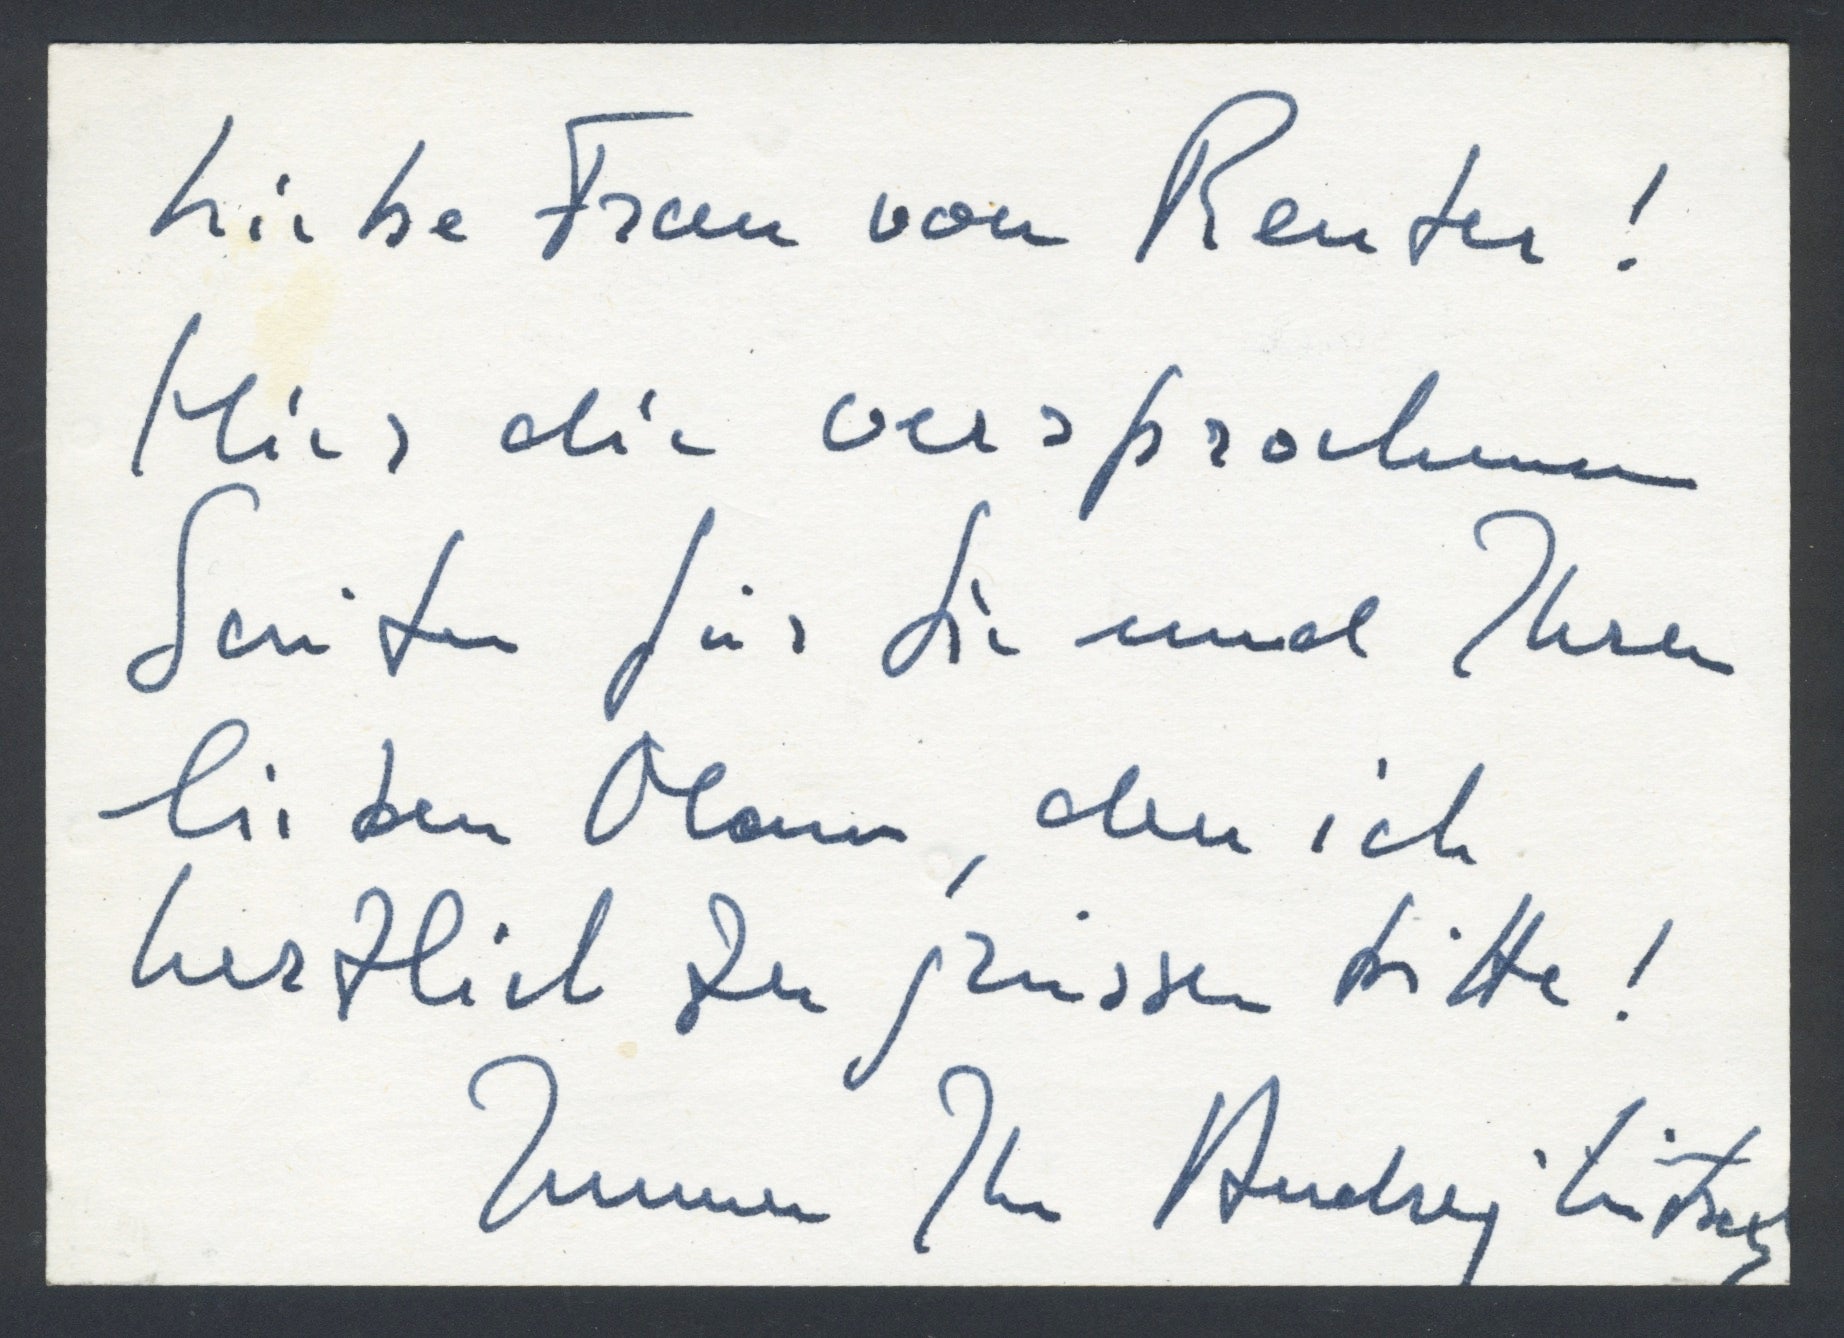 Liebe Frau von Reuter!
Hier die versprochenen
Seiten für Sie und Ihren
lieben Mann, den ich
herzlich zu grüssen bitte!
Immer Ihr Andrej